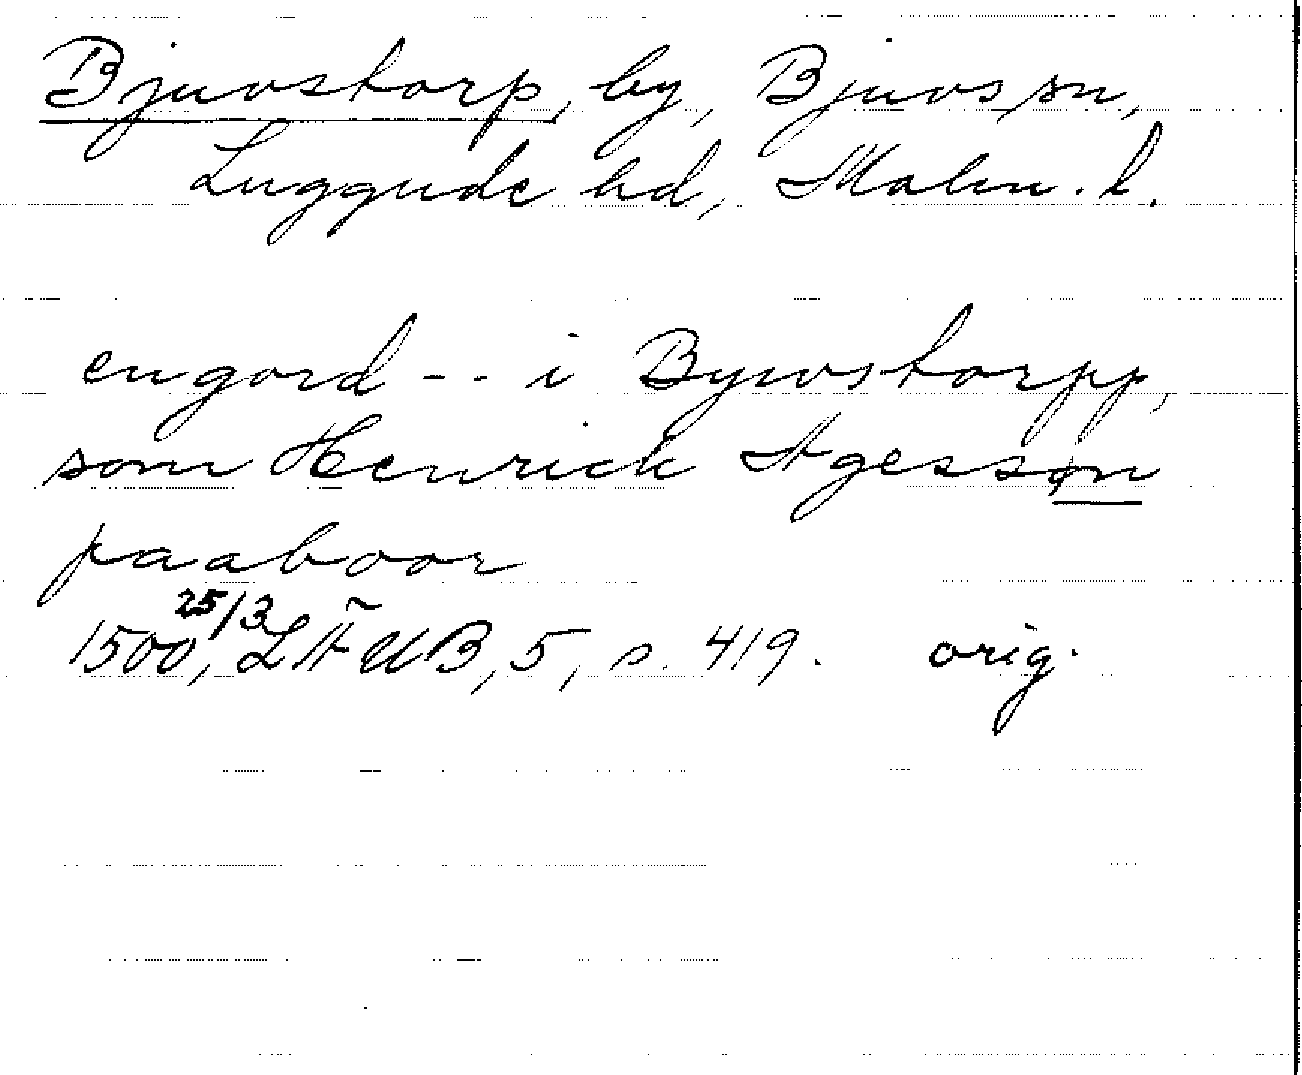 Bjuvstorp, by, Bjuvs sn,
Luggude hd, Malm. l.
en gord -- i Bywstorpp,
som Henrich Agesson
paa boor
1500, 25/3, LÄUB, 5, s. 419. orig.